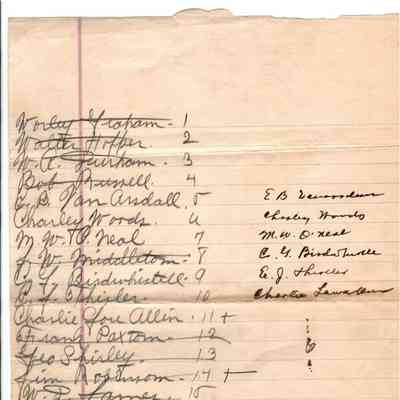 Worley Graham - 1
Walter Hopper. 2
W.A. Durham. 3
Bob Russell. 4
E.B. Van Arsdall. 5
Charley Woods. 6
M.W. O'Neal 7
J.W. Middleton - 8
C.Y. Birdwhistell - 9
E.J. Shirler. 10
Charlie Jou Allin. 11 +
Frank Paxton. 12
Geo Shirley. 13
Jim Robinson. 14 +
W. 15
E B
Charley Woods
M.W. O'neal
C.Y. Birdwhistell
E.J.
Charlie
6